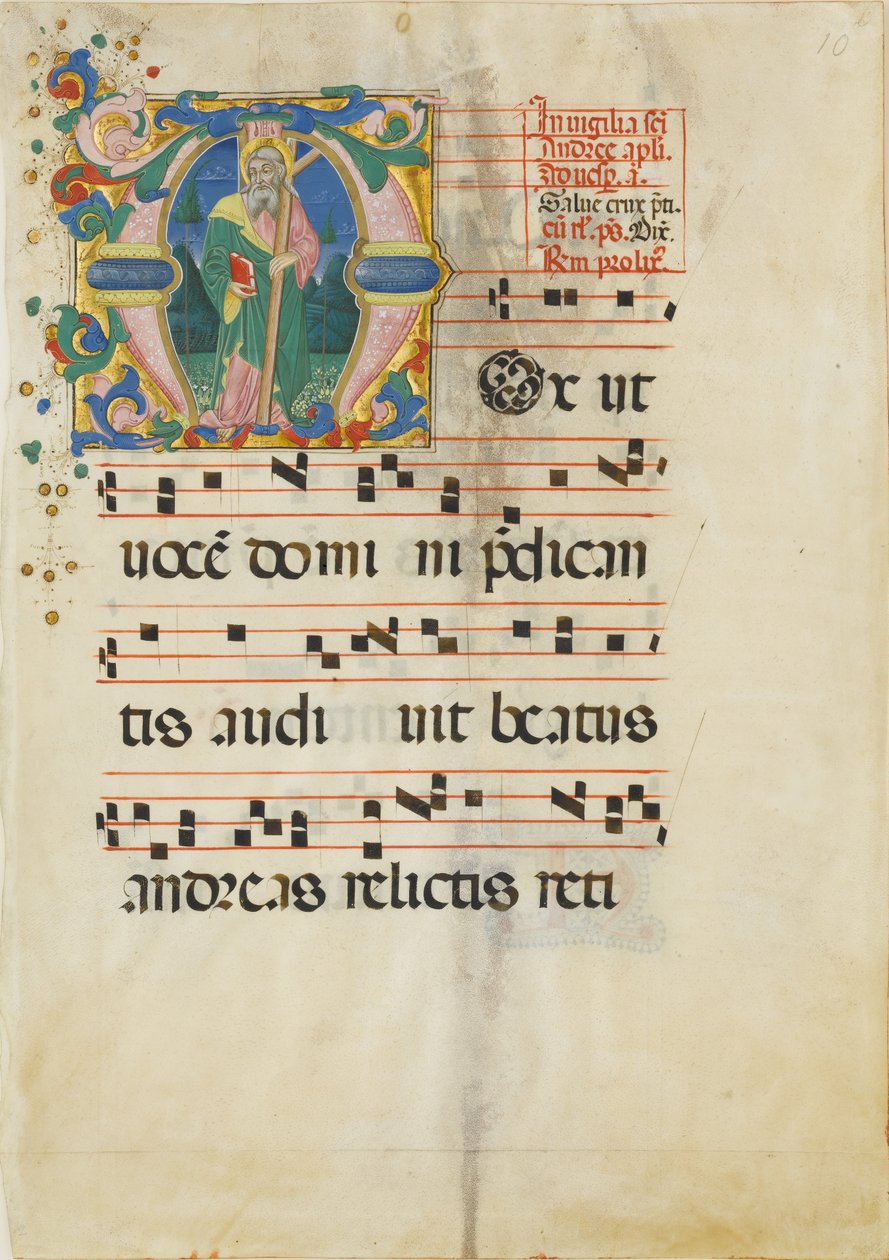 10
In uigilia scī
Andree apli.
Ad uesp̄. ā.
Salue crux p̄ti.
cū rl'. ps. Dix̄.
Rm prolix̄.
Mox ut
uocē domi ni p̄dican
tis audi uit beatus
andreas relictis reti